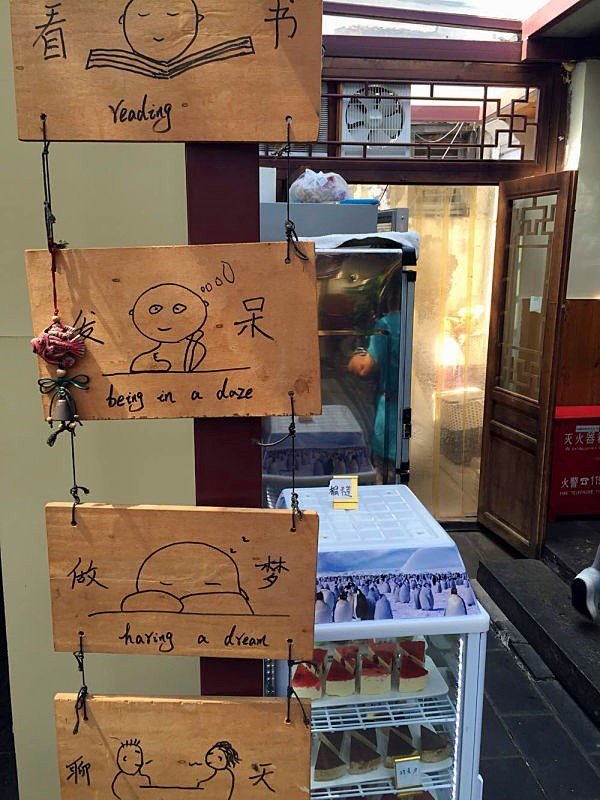 看 书
reading
发 呆
being in a daze
做 梦
having a dream
聊 天
灭火器
火警☎119
FIRE TELEPHONE